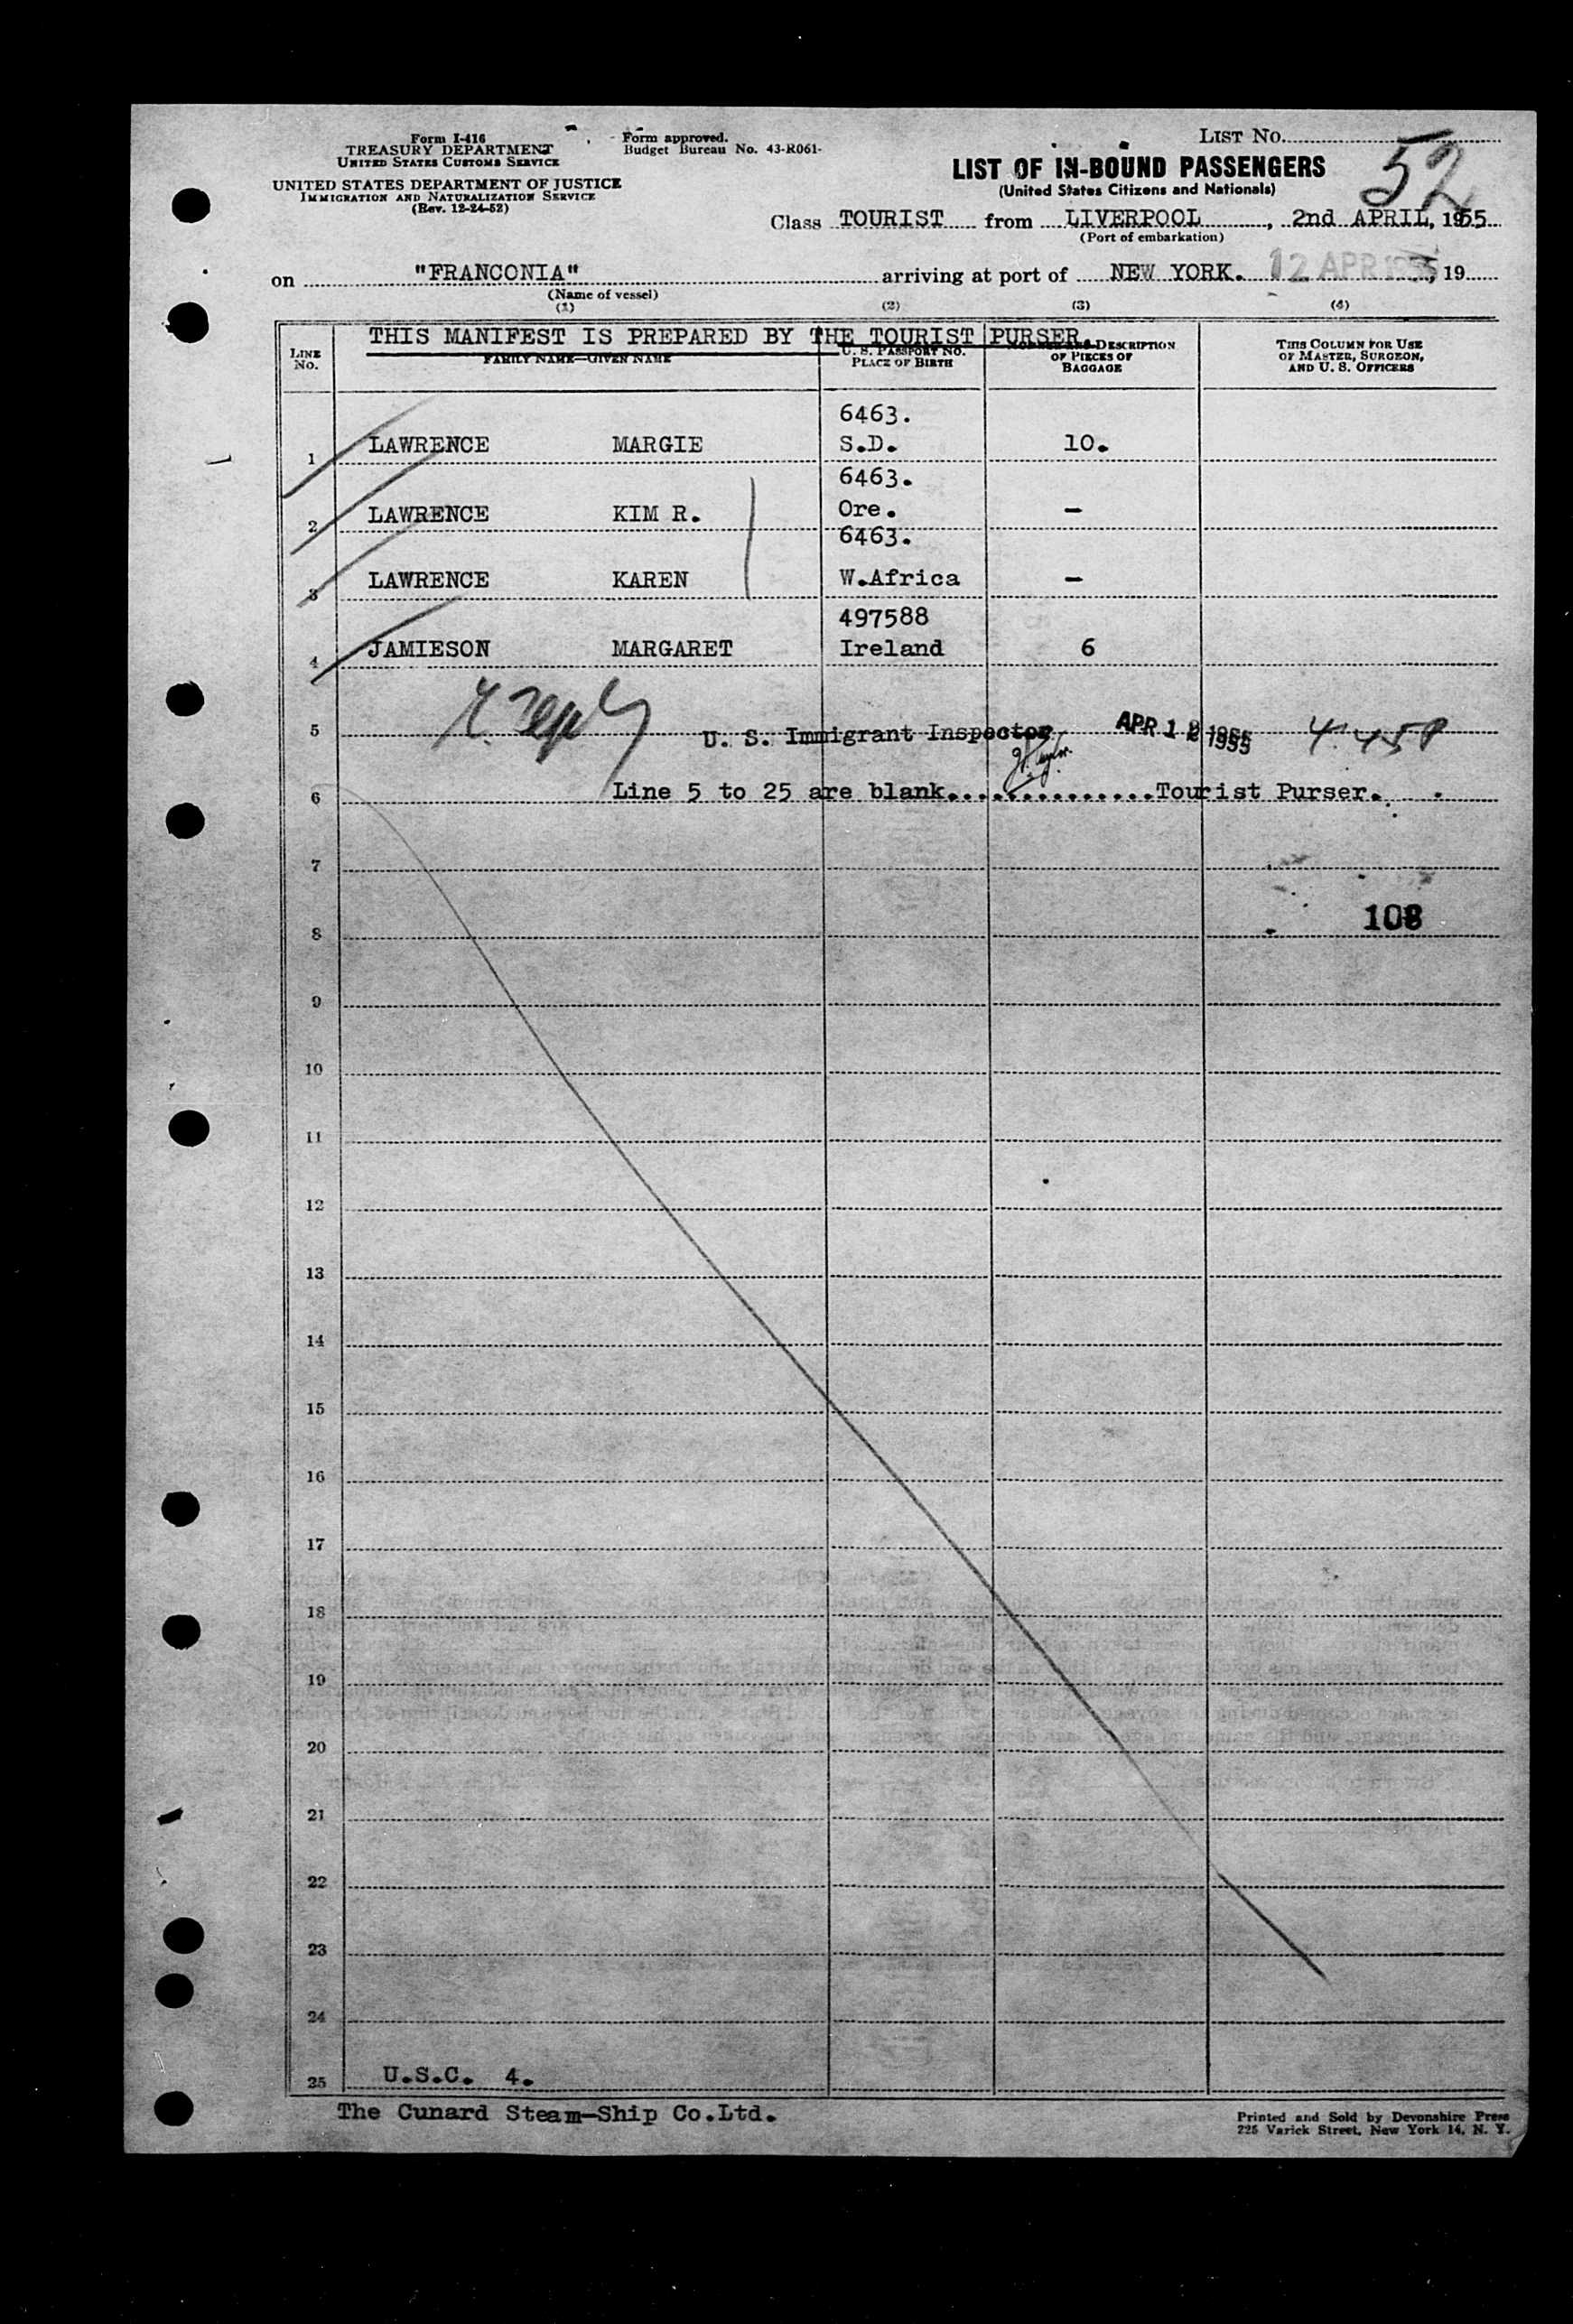 Form I-416
TREASURY DEPARTMENT
UNITED STATES CUSTOMS SERVICE
UNITED STATES DEPARTMENT OF JUSTICE
IMMIGRATION AND NATURALIZATION SERVICE
(Rev. 12-24-52)
Form approved.
Budget Bureau No. 43-R061-
LIST NO.
52
LIST OF IN-BOUND PASSENGERS
(United States Citizens and Nationals)
Class TOURIST from LIVERPOOL, 2nd APRIL, 1955
(Port of embarkation)
on "FRANCONIA" arriving at port of NEW YORK. 12 APR 1955, 19
(Name of vessel)
(1) (2) (3) (4)
THIS MANIFEST IS PREPARED BY THE TOURIST PURSER.
LINE NO.
FAMILY NAME—GIVEN NAME
U. S. PASSPORT NO.
PLACE OF BIRTH
NUMBER AND DESCRIPTION
OF PIECES OF
BAGGAGE
THIS COLUMN FOR USE
OF MASTER, SURGEON,
AND U. S. OFFICERS
6463.
1 LAWRENCE MARGIE S.D. 10.
6463.
2 LAWRENCE KIM R. Ore. –
6463.
3 LAWRENCE KAREN W.Africa –
497588
4 JAMIESON MARGARET Ireland 6
5 U. S. Immigrant Inspector APR 12 1955
6 Line 5 to 25 are blank...............Tourist Purser.
7
108
8
9
10
11
12
13
14
15
16
17
18
19
20
21
22
23
24
25 U.S.C. 4.
The Cunard Steam-Ship Co.Ltd.
Printed and Sold by Devonshire Press
225 Varick Street, New York 14, N. Y.